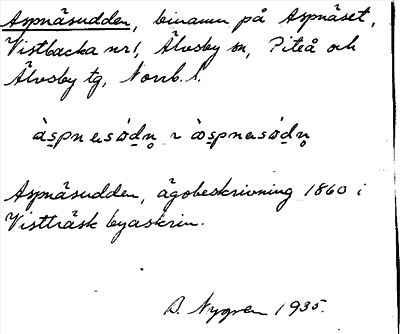 Aspnäsudden, binamn på Aspnäset,
Vistbacka nr 1, Älvsby sn, Piteå och
Älvsby tg, Norrb. l.
àspnɐsódn̥ r
Aspnäsudden, ägobeskrivning 1860 i
Vistträsk byaskrin.
D. Nygren 1935.